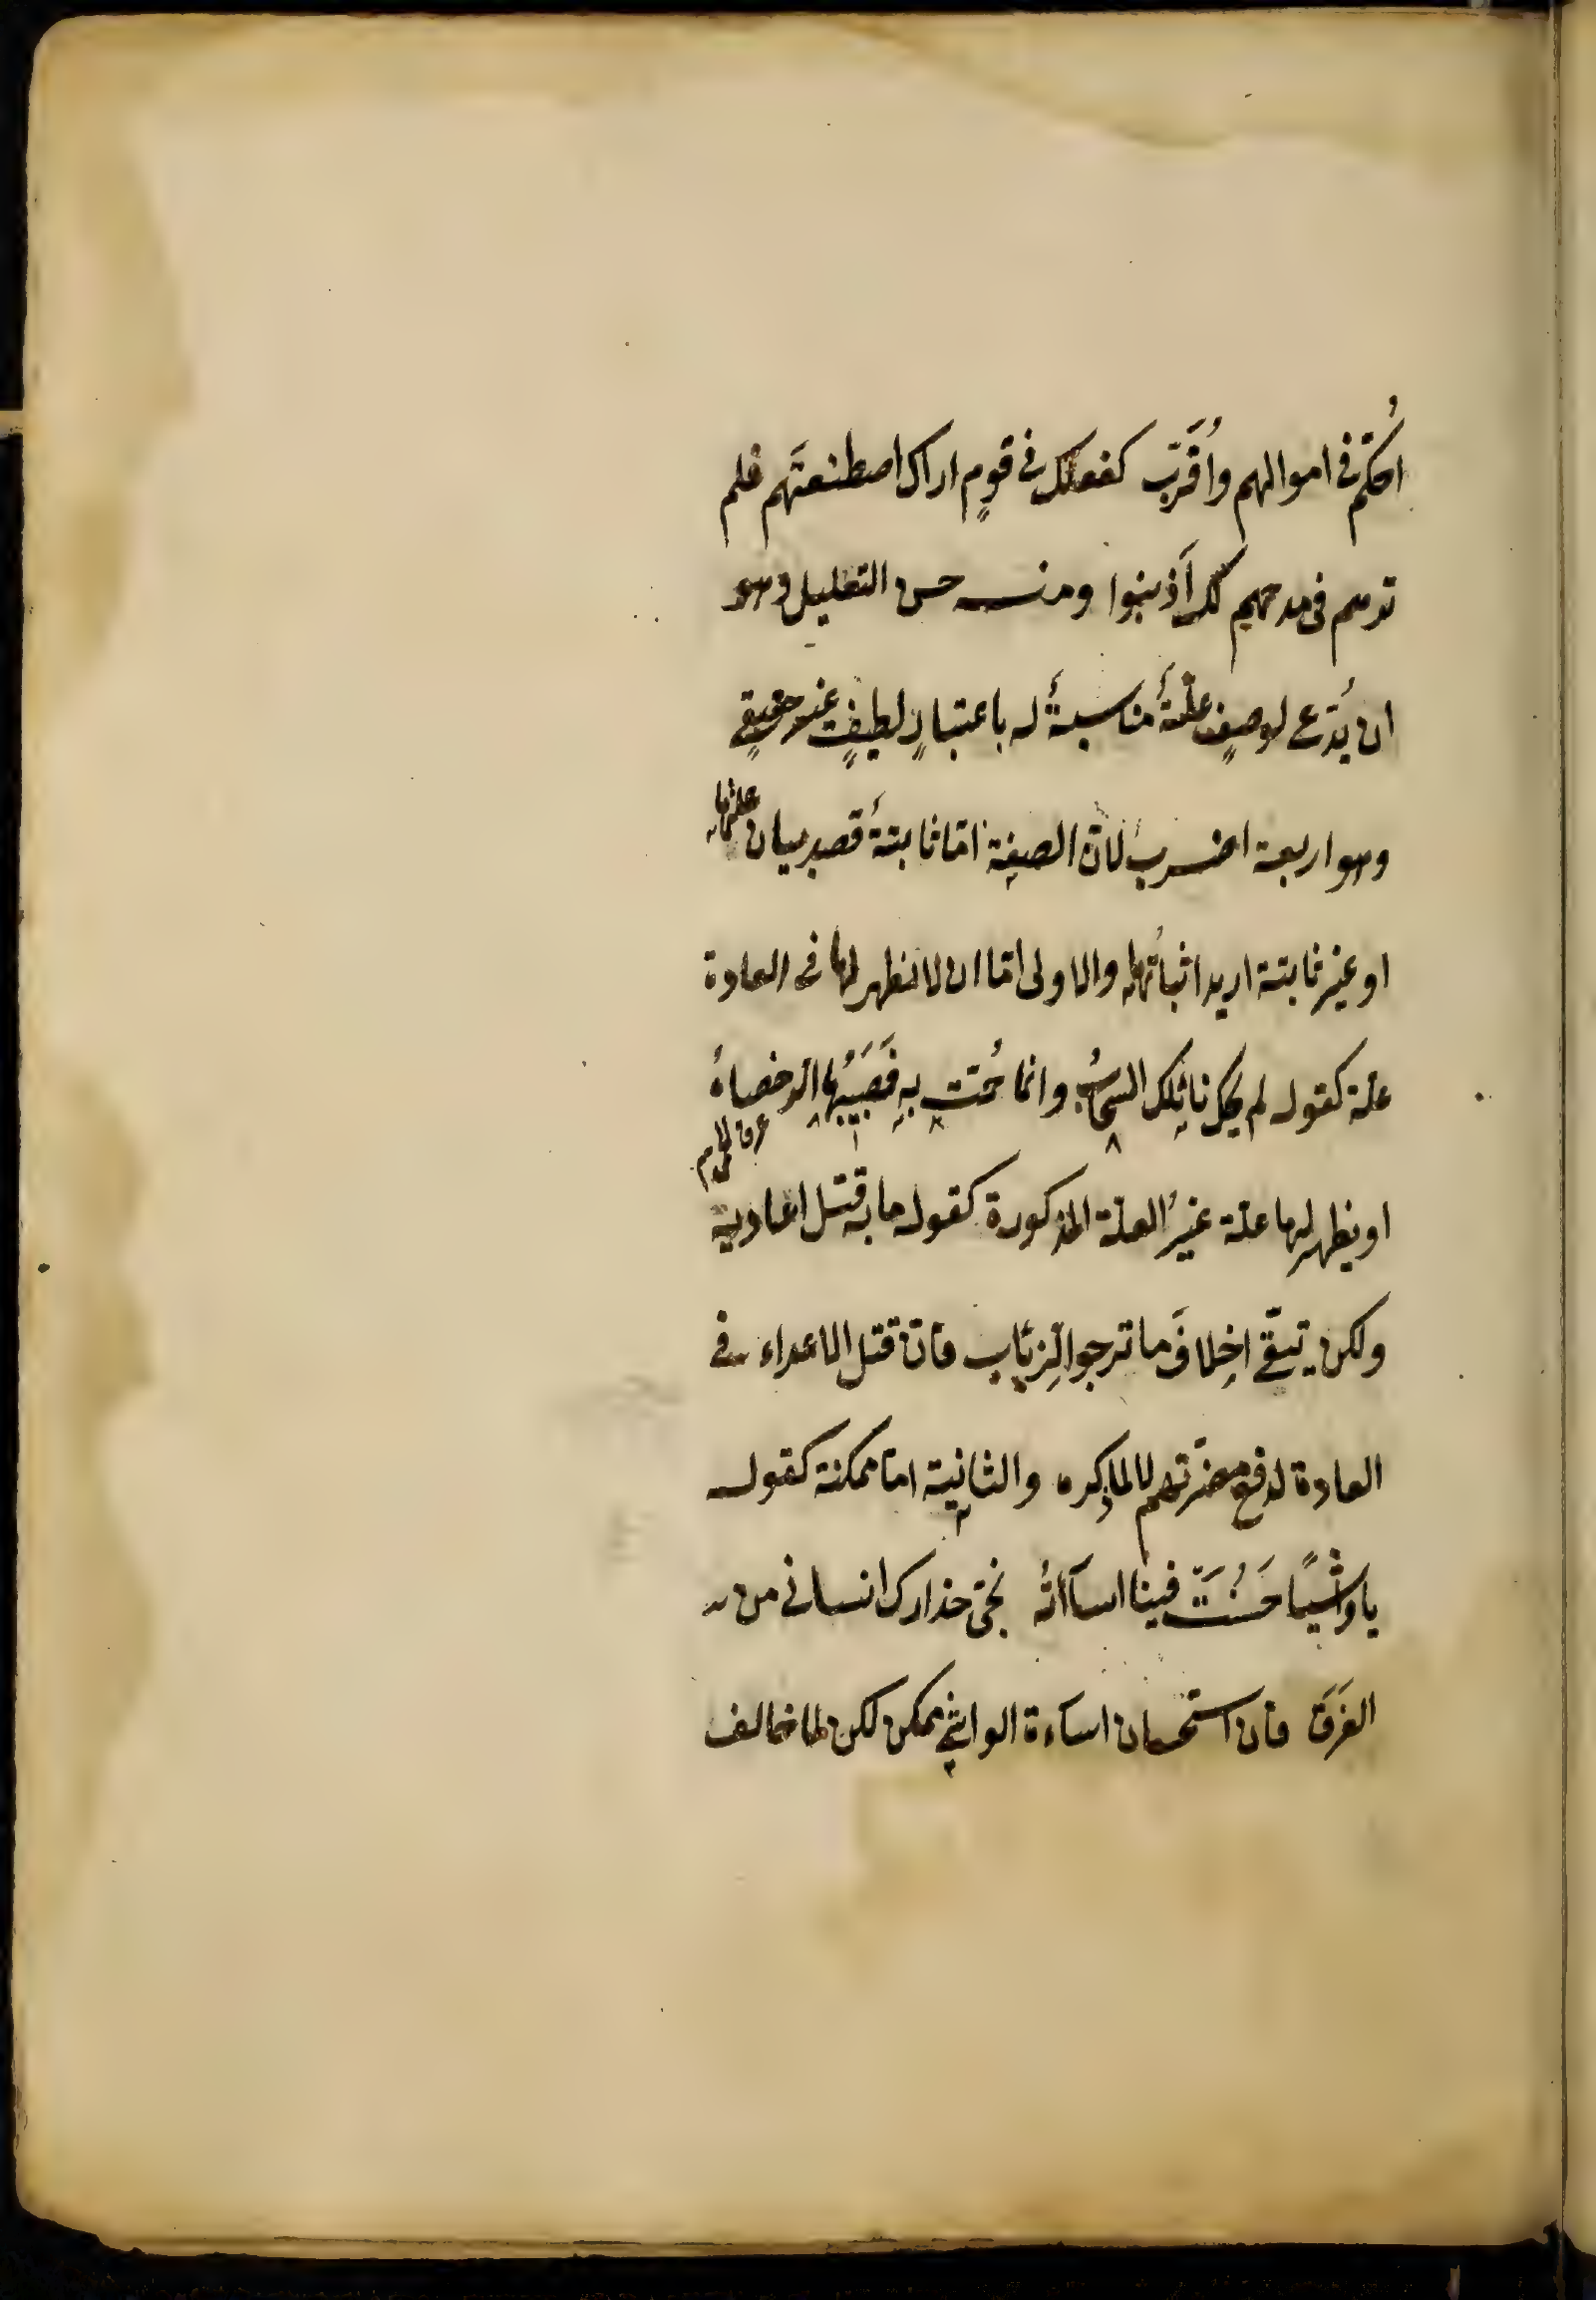 اُحَكَّم فى اموالهم واُقَرَّب كفعلك فى قومٍ اراك اصطنعتَهم فلم
ترهم فى مدحهم لك اَذنبوا ومنه حسن التعليل وهو
ان يُدّعى لوصفٍ علّةٌ مناسبةٌ له باعتبارٍ لطيفٍ غير حقيقىٍ
وهو اربعة اضرب لانّ الصفة امّا ثابتةٌ قصد بيان علتها
او غير ثابتة اريد اثباتها والاولى امّا ان لا يظهر لها فى العادة
علة كقوله لم يحك نائلك السحابُ وانما حُمّت بهِ فَصَبيبُها الرحضاءُ
عرق الحمى
او يظهر لها علة غيرُ العلة المذكورة كقوله ما به قتل اعاديه
ولكن يتّقى اِخلافَ ما ترجو الذِئاب فانّ قتل الاعداء فى
العادة لدفع مضرّتهم لا لما ذكره والثانية اما ممكنة كقوله
يا واشيًا حَسُنَتْ فينا اساآته نجّى حذارك انسانى من
الغَرَق فان استحسان اساءة الواشى ممكن لكن لما خالف